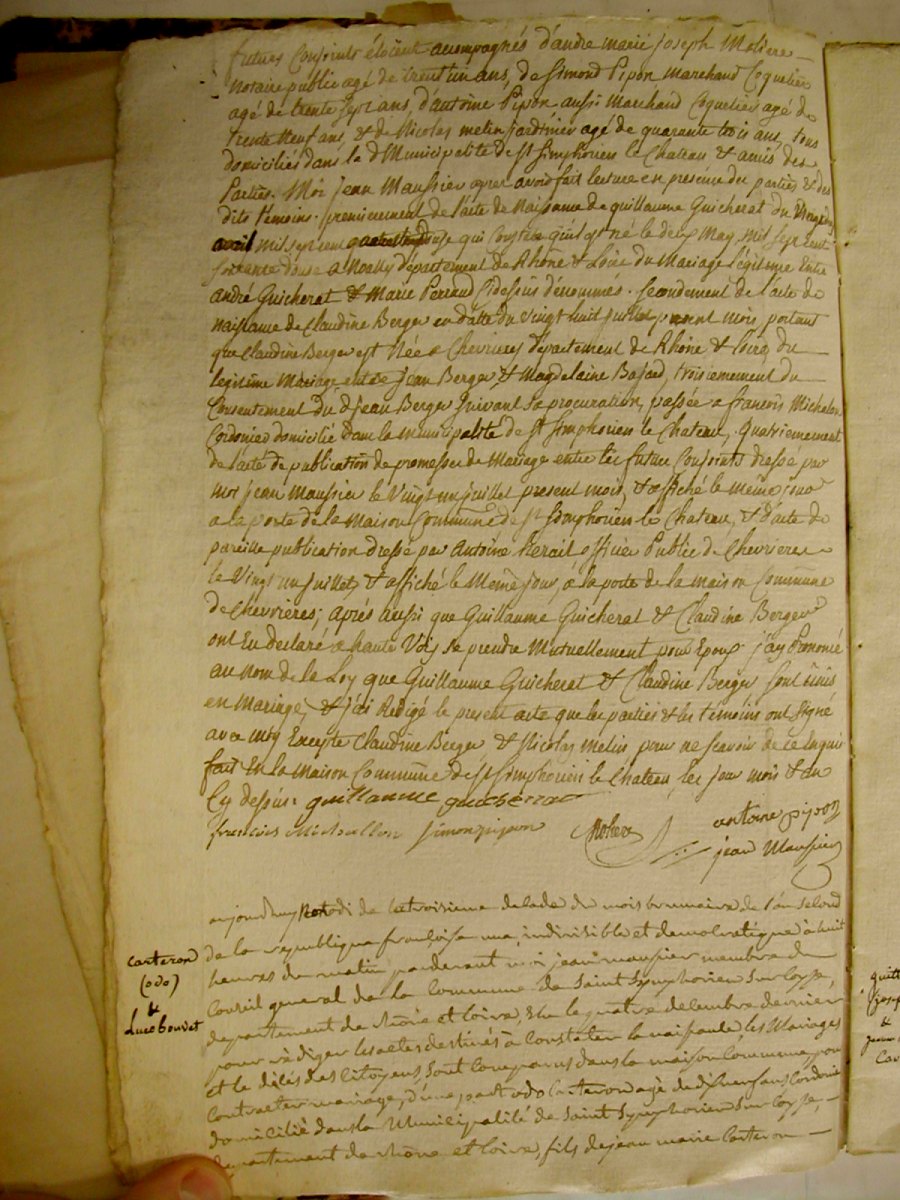 futurs Conjoints étoient accompagnés d'andre marie Joseph Moliere
Notaire public agé de trent un ans, de Simond Pipon Marchand Coquetier
agé de trente Sept ans, d'antoine Pipon aussi Marchand Coquetier agé de
trente Neuf ans, & de Nicolas melin jardinier agé de quarante trois ans, tous
domiciliés dans la d Municipalité de st Simphorien le Chateau & amis des
Parties. Moi jean Maussier après avoir fait lecture en presence des parties & des
dits témoins. premierement de l'acte de Naissance de guillaume Guicherat du
avril mil sept cent qui Constate qu'il est né le deux May mil sept cent
soixante douse a Noally département de Rhône & Loire du Mariage légitime Entre
andré Guicherat & Marie Perraud Cy dessus denommés. Secondement de l'acte de
naissance de Claudine Berger en datte du Vingt huit juillet present mois portant
que Claudine Berger est Née a Chevrieres département de Rhône & Loire, du
legitime Mariage entre jean Berger & Magdelaine Bajard, troisiemement du
Consentement du d jean Berger suivant sa procuration, passée a francois Michalon
Cordonier domicilié dans la municipalité de st Simphorien le Chateau, quatriemement
de l'acte de publication de promesses de Mariage entre les futurs Conjoints dressé par
moi jean maussier le Vingt un juillet present mois, & affiché le même jour
a la porte de la Maison Commune de st Simphorien le Chateau, & d'acte de
pareille publication dressé par Antoine officier Public de Chevrieres
le Vingt un juillet, & affiché le Même jour, à la porte de la maison Commune
de Chevrières; aprés aussi que Guillaume Guicherat & Claudine Berger
ont Eu declaré a haute Voix se prendre Mutuellement pour Epoux j'ay Prononcé
au Nom de la Loy que Guillaume Guicherat & Claudine Berger sont unis
en Mariage, & j'ai Redigé le present acte que les parties & les témoins ont signé
avec moy Excepte Claudine Berger & Nicolas Melin pour ne scavoir de ce Enquis
fait En la Maison Commune de st Simphorien le Chateau, les jour mois & an
Cy dessus: guillaume guicherat
francois Michallon Simon pipon Moliere antoine pipon
jean Maussier
aujourd'huy octodi de la troisieme decade du mois brumaire de l'an second
de la republique francoise une, indivisible et democratique à huit
heures du matin pardevant moi jean maussier membre du
Conseil general de la Commune de Saint Symphorien Sur Coyse,
departement de Rhône et Loire, Elu le quatre decembre dernier
pour rédiger les actes destinés à Constater la naissance, les Mariages
et le décés des Citoyens, sont Comparus dans la maison Commune, pour
Contracter mariage, d'une part odo Carteron agé de ans Cordonier
domicilié dans la Municipalité de Saint Symphorien Sur Coyse,
departement de Rhône et Loire, fils de jean marie Carteron
Carteron
(odo)
&